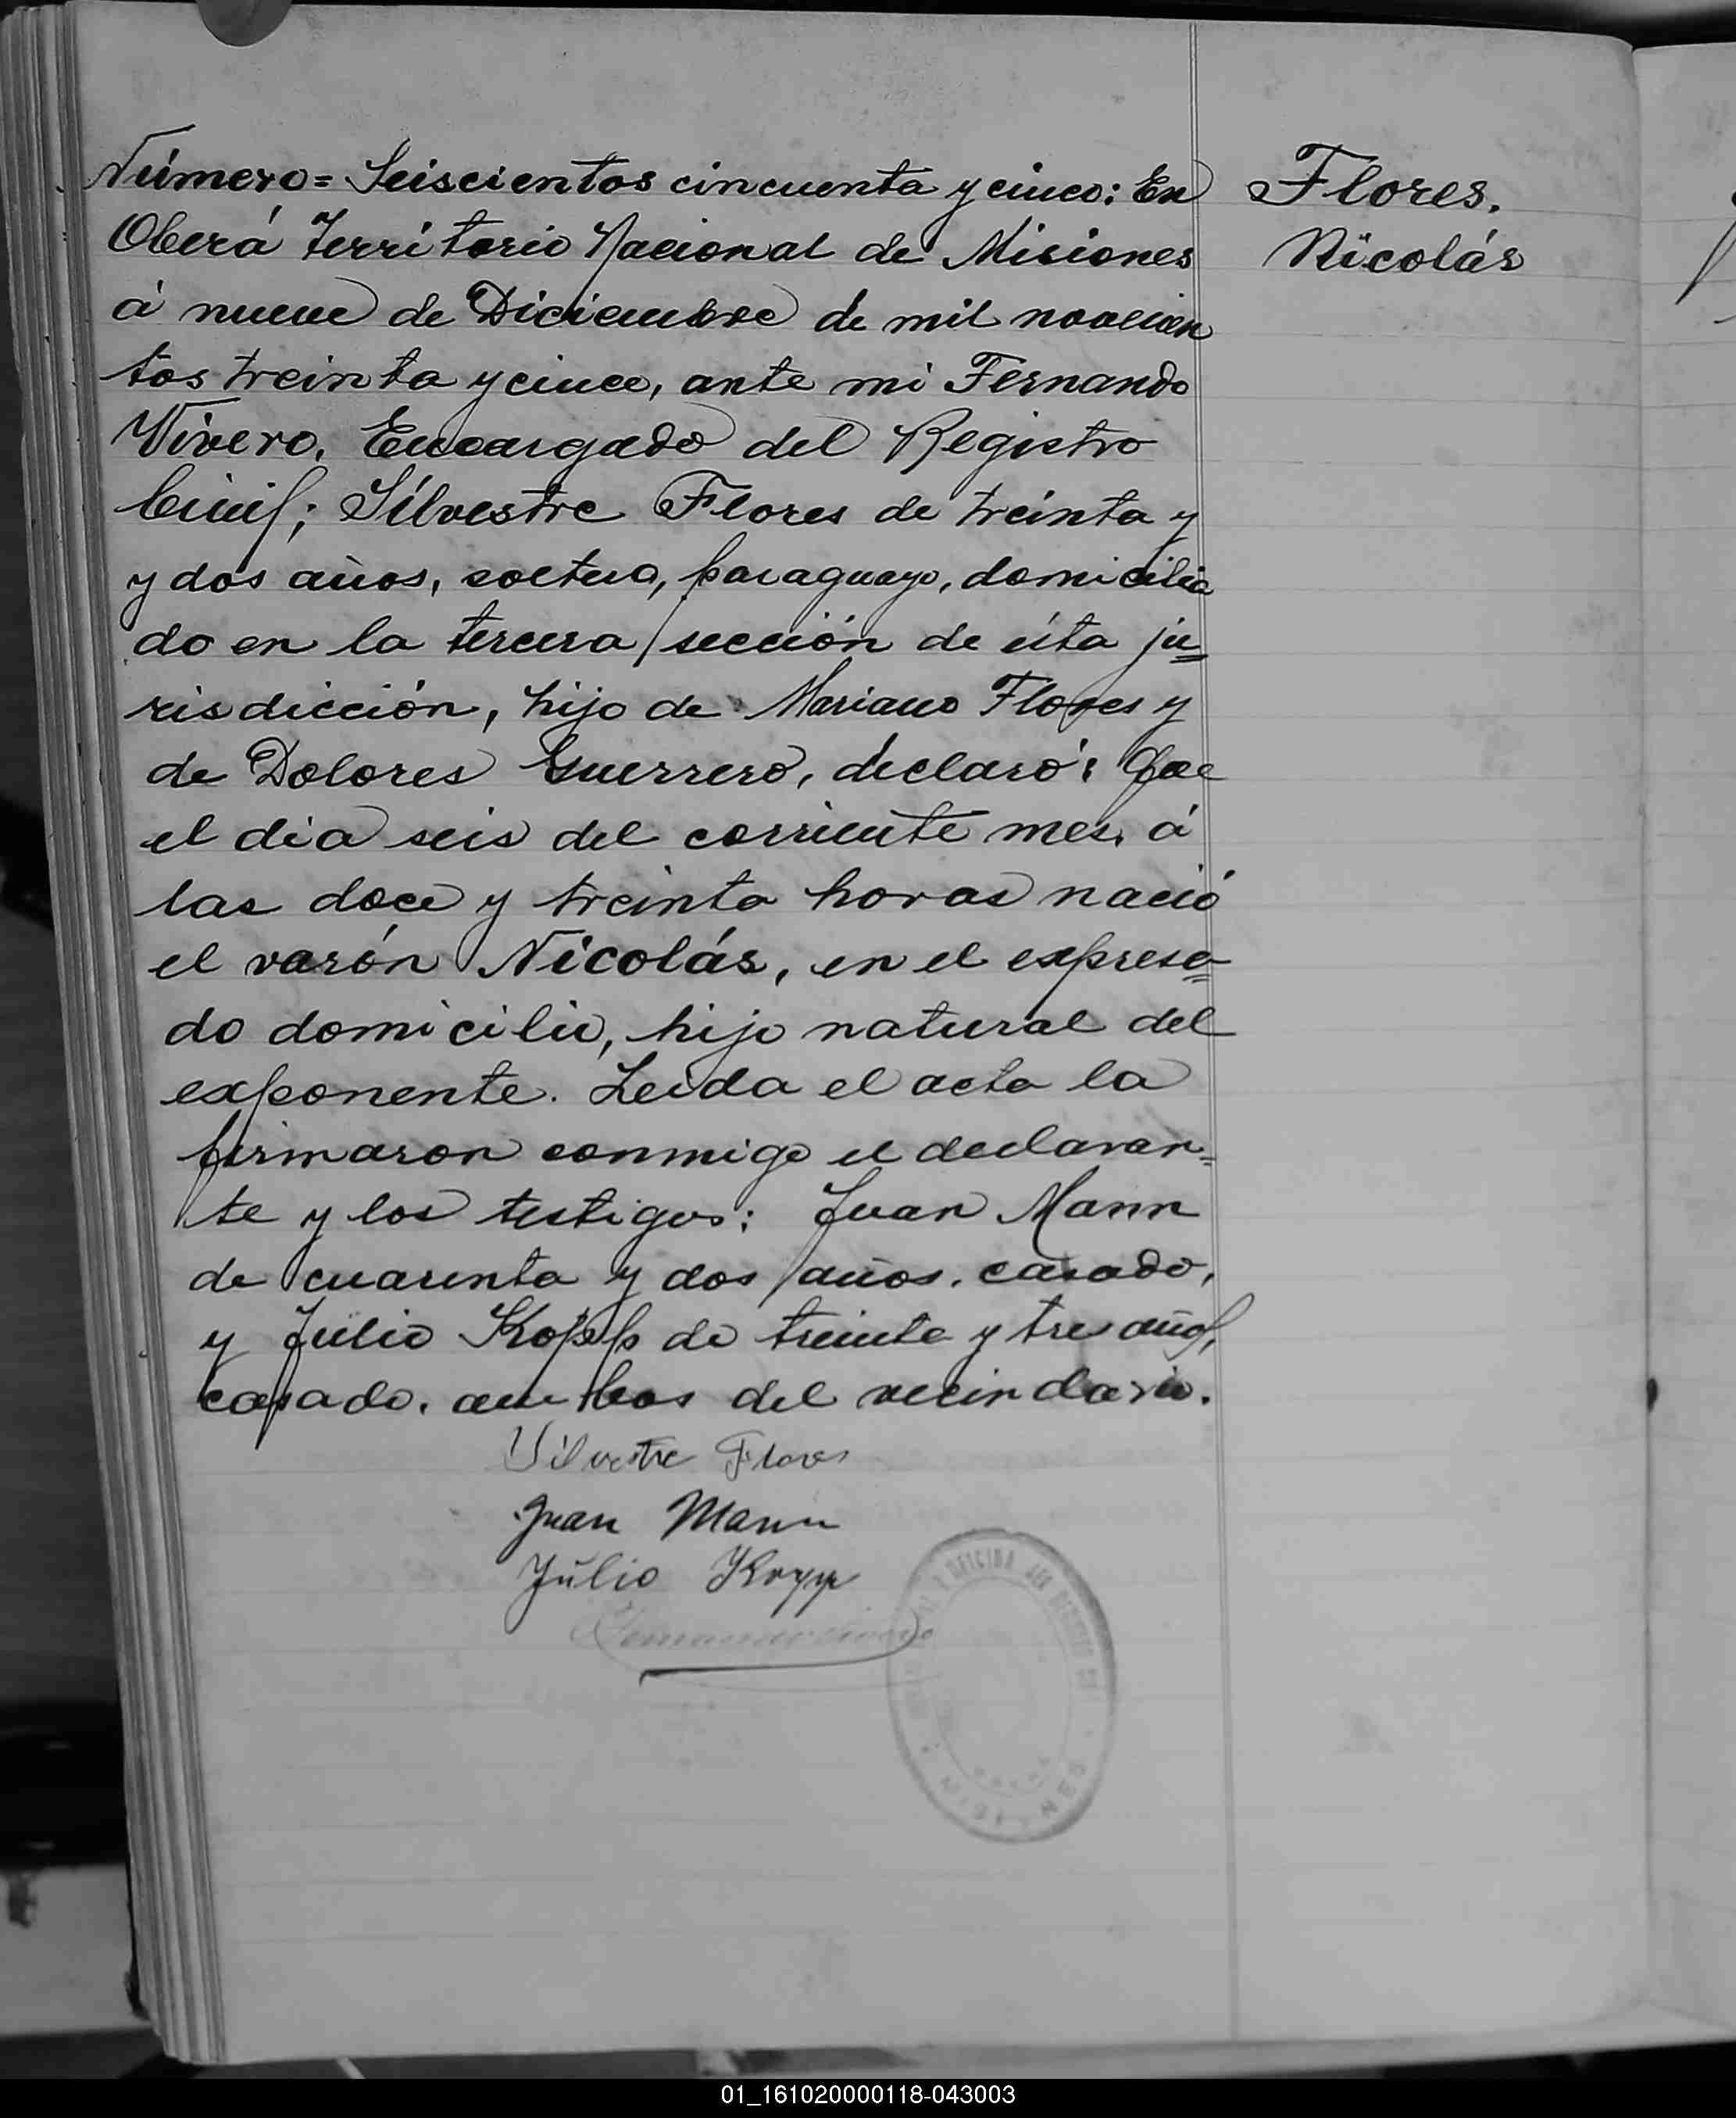 Número= Seiscientos cincuenta y cinco: En
Oberá Territorio Nacional de Misiones
á nueve de Diciembre de mil novecien
tos treinta y cinco, ante mi Fernando
Vivero, Encargado del Registro
Civil; Silvestre Flores de treinta y
y dos años, soltero, paraguayo, domicilia
do en la tercera sección de ésta ju=
risdicción, hijo de Mariano Flores y
de Dolores Guerrero, declaró: Que
el dia seis del corriente mes, á
las doce y treinta horas nació
el varón Nicolás, en el expresa=
do domicilio, hijo natural del
exponente. Leida el acta la
firmaron conmigo el declaran=
te y los testigos: Juan Mann
de cuarenta y dos años, casado,
y Julio Kopp de treinta y tres años,
casado, ambos del vecindario.
Silvestre Flores
Juan Mann
Julio Kopp
Flores.
Nicolás
OFICINA DEL REGISTRO
MISIONES
01_161020000118-043003